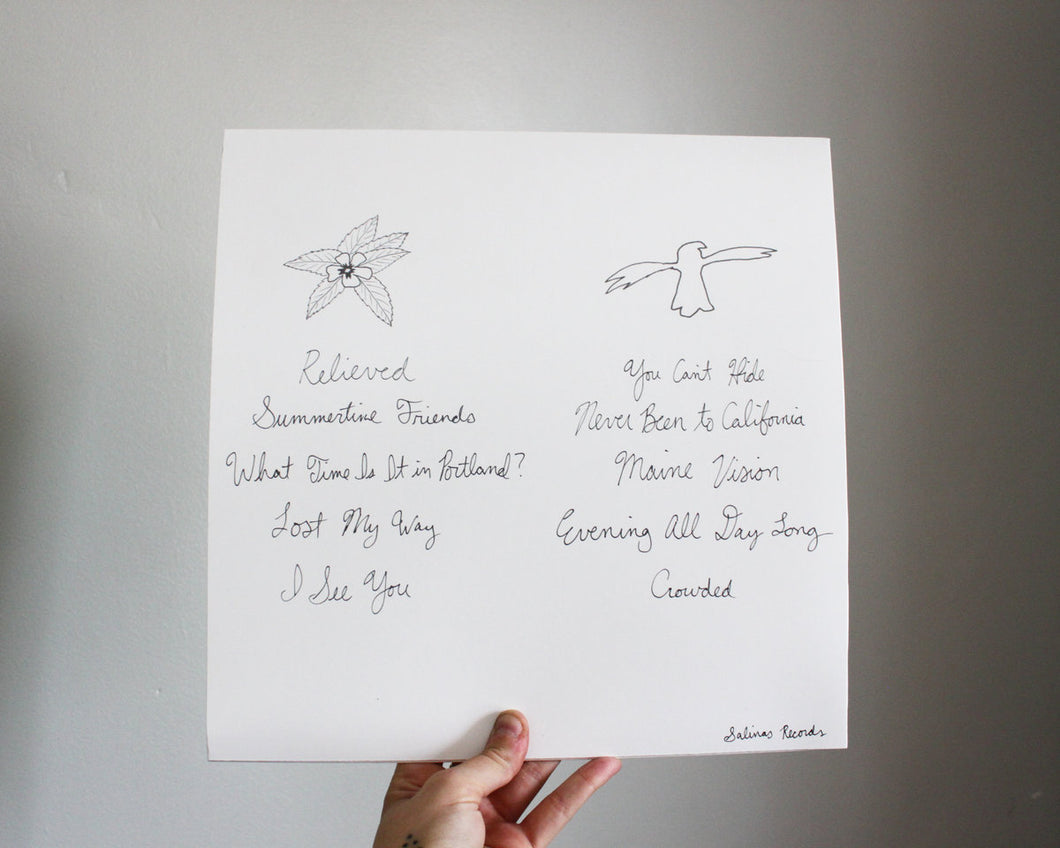 Relieved
Summertime Friends
What Time Is It in Portland?
Lost My Way
I See You
You Can't Hide
Never Been to California
Maine Vision
Evening All Day Long
Crowded
Salinas Records